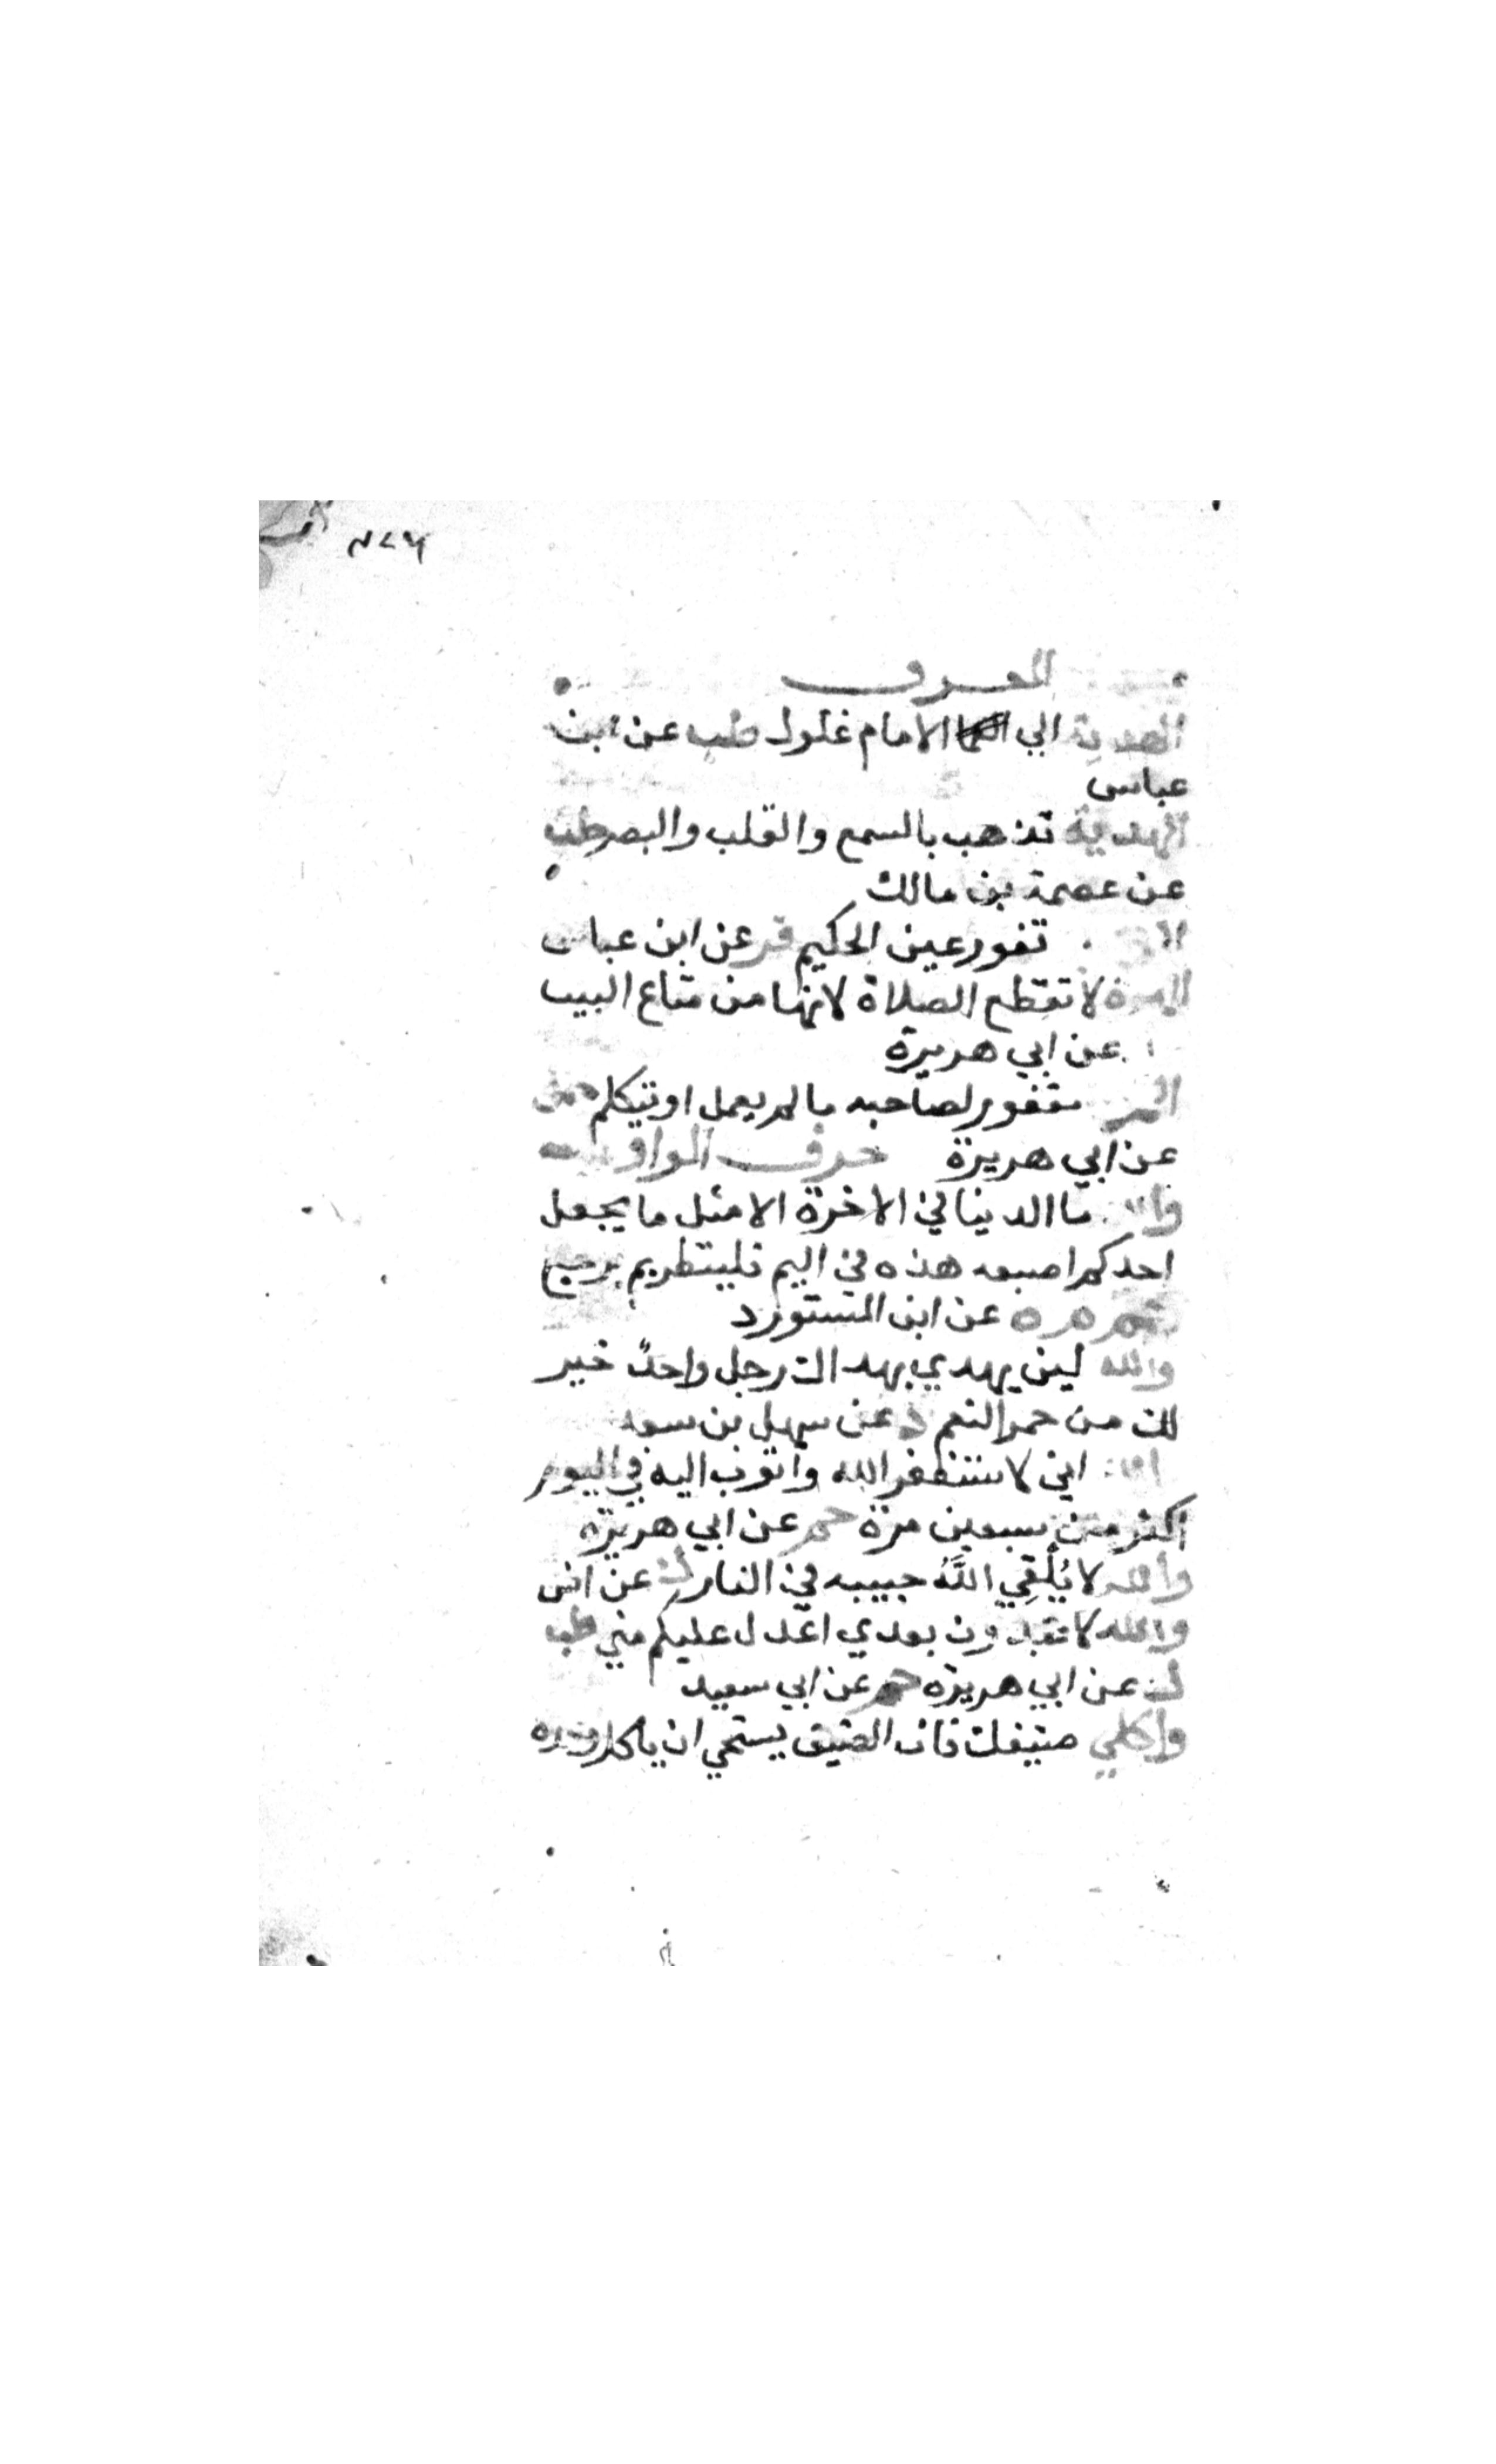 المعرف
الهدية الي الامام غلول طب عن ابن
عباس
الهدية تذهب بالسمع والقلب والبصر طب
عن عصمة بن مالك
تغور عين الحكيم فر عن ابن عباس
الهرة لا تقطع الصلاة لانها من متاع البيت
عن ابي هريرة
مغفور لصاحبه ما لم يعمل او يتكلم
عن ابي هريرة حرف الواو
ما الدنيا في الاخرة الا مثل ما يجعل
احدكم اصبعه هذه في اليم فلينظر بم يرجع
حم م ه عن ابن المستورد
والله لين يهدي بهداك رجل واحدٌ خير
لك من حمر النعم د عن سهل بن سعد
اني لاستغفر الله واتوب اليه في اليوم
اكثر من سبعين مرة حم عن ابي هريرة
والله لا يُلْقِي اللَّهُ حبيبه في النار ك عن انس
والله لا تجدون بعدي اعدل عليكم مني طب
ك عن ابي هريرة حم عن ابي سعيد
واكلي ضيفك فان الضيف يستحي ان ياكل وحده